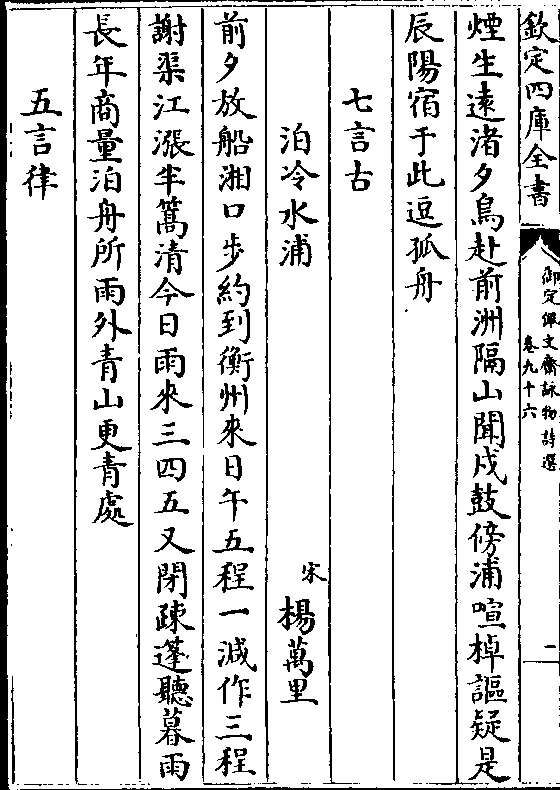 欽定四庫全書
御定佩文齋詠物詩選
卷九十六
二
煙生遠渚夕鳥赴前洲隔山聞戍鼓傍浦喧棹謳疑是
辰陽宿于此逗孤舟
七言古
泊冷水浦
宋 楊萬里
前夕放船湘口步約到衡州來日午五程一減作三程
謝渠江漲半篙清今日雨來三四五又閉疎蓬聽暮雨
長年商量泊舟所雨外青山更青處
五言律